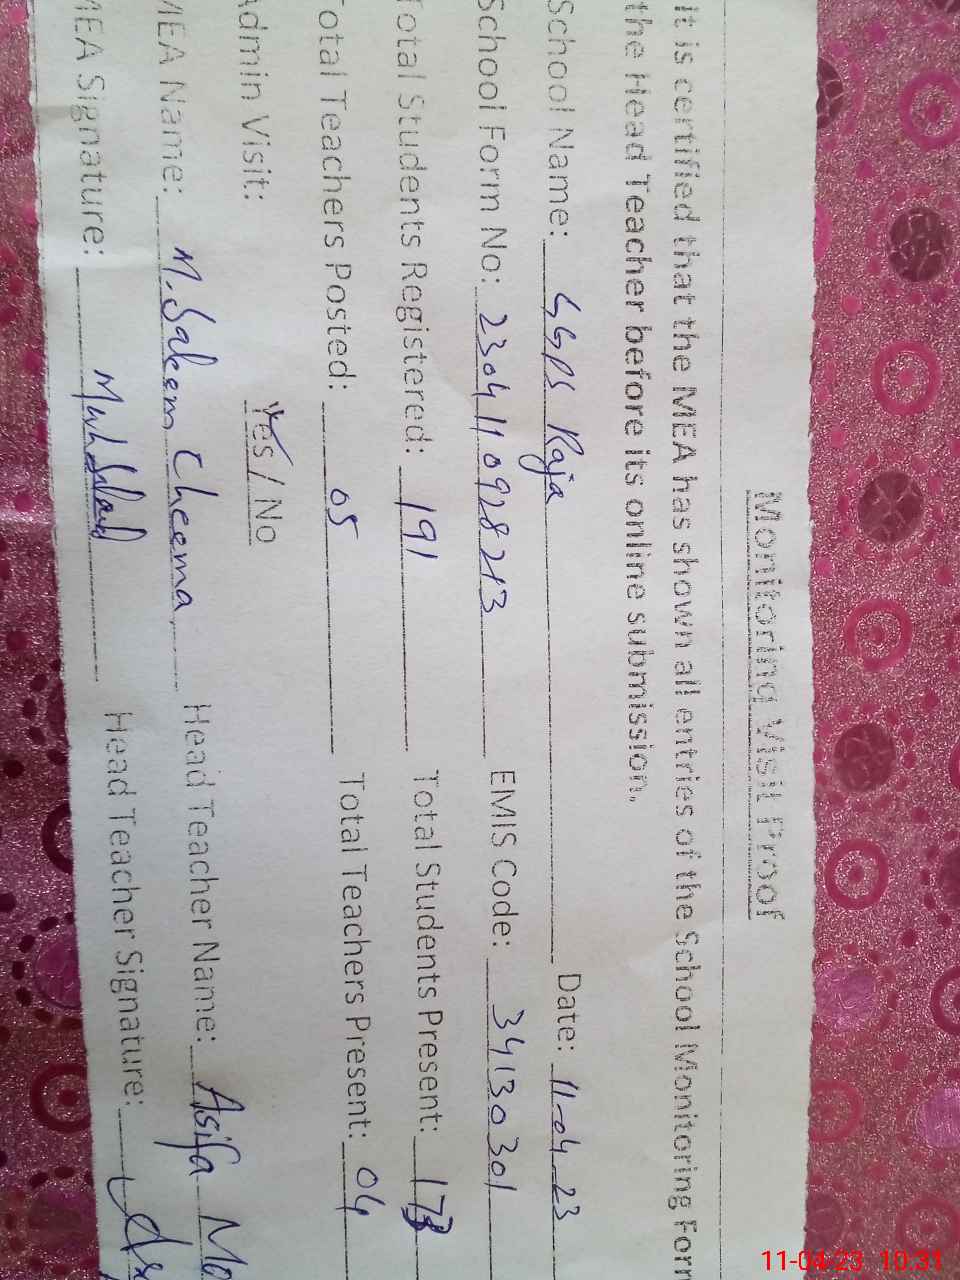 Monitoring Visit Proof
It is certified that the MEA has shown all entries of the School Monitoring Form
the Head Teacher before its online submission.
School Name: GGPS Raja Date: 11-04-23
School Form No: 2304110928213 EMIS Code: 34130301
Total Students Registered: 191 Total Students Present: 173
Total Teachers Posted: 05 Total Teachers Present: 04
Admin Visit: Yes / No
MEA Name: M. Saleem Cheema Head Teacher Name: Asifa
MEA Signature: Head Teacher Signature:
11-04-23 10:31